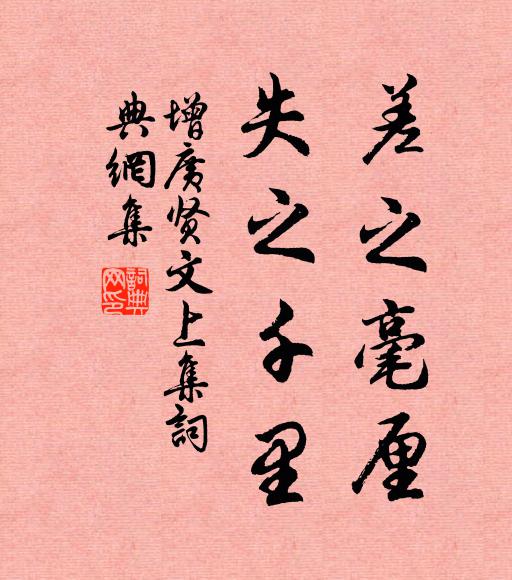 差之毫厘
失之千里
增广贤文上集詞
典網集
詞典
网印